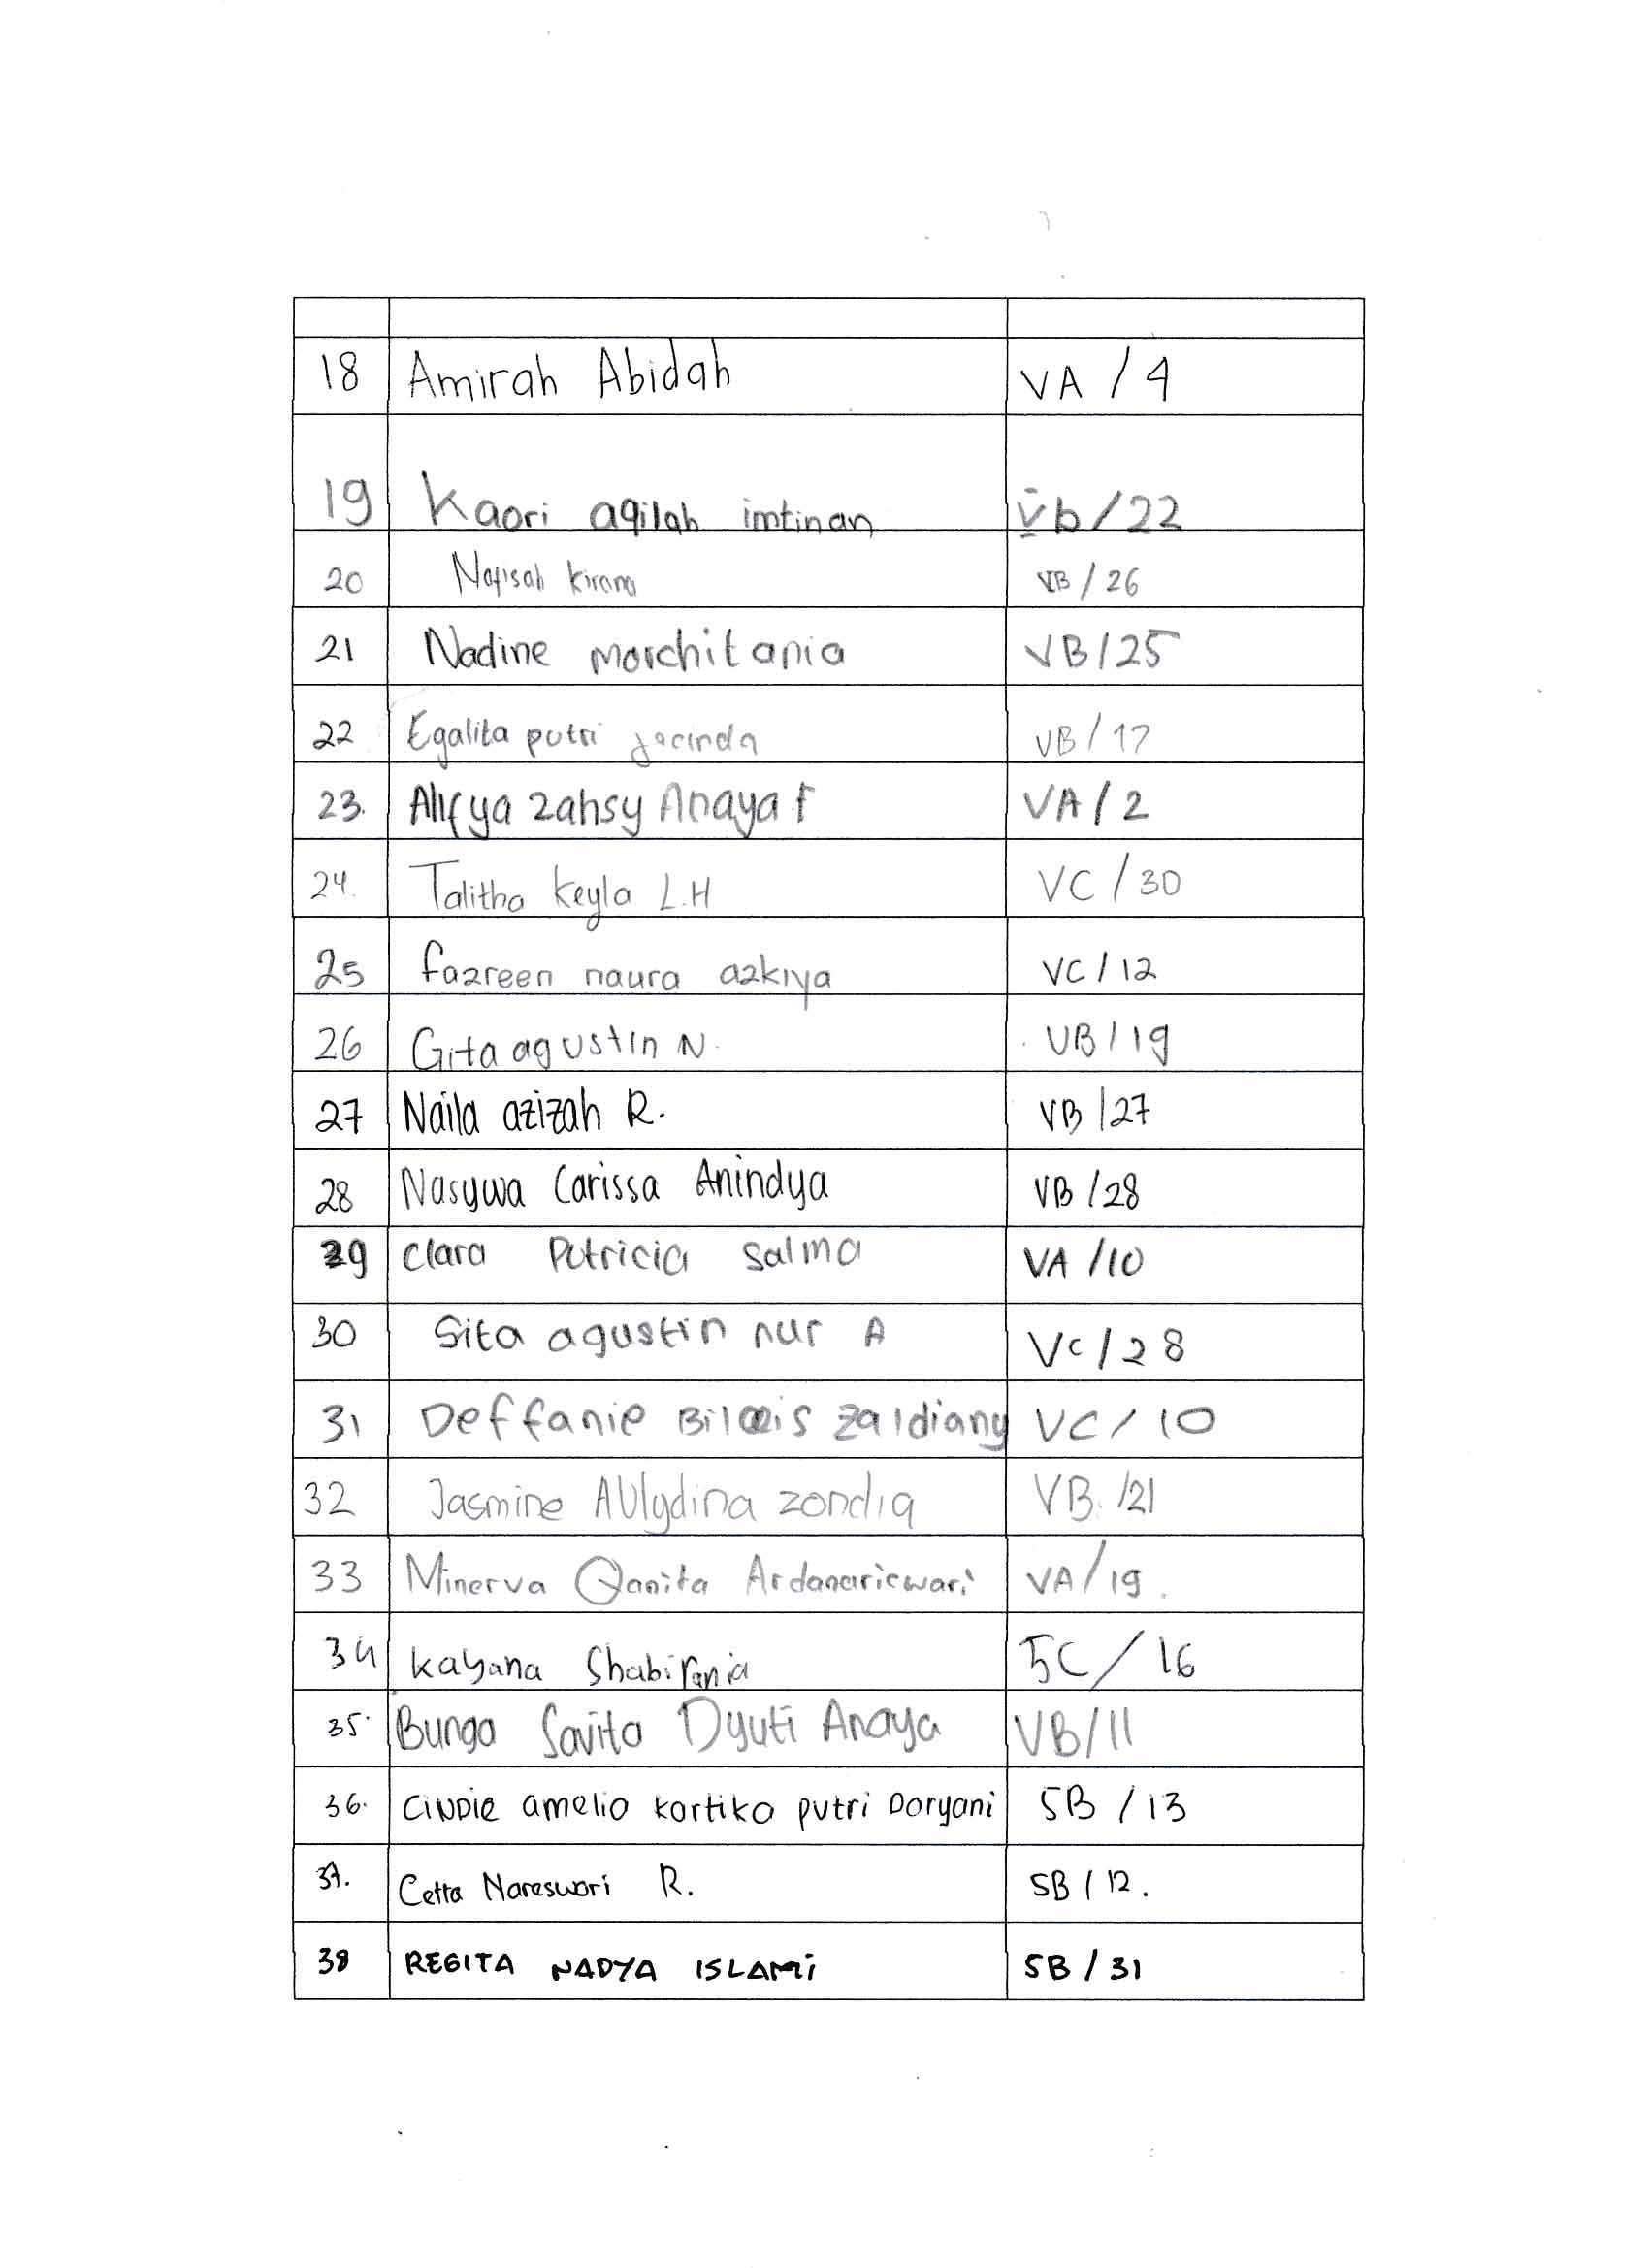 18 Amirah Abidah VA / 4
19 Kaori aqilah imtinan Vb/22
20 Nafisah kirana VB / 26
21 Nadine morchitania VB/25
22 Egalita putri jacinda VB / 17
23. Alifya zahsy Anaya f VA / 2
24. Talitha keyla L.H VC / 30
25 fazreen naura azkiya VC / 12
26 Gita agustin N. VB / 19
27 Naila azizah R. VB / 27
28 Nasywa Carissa Anindya VB / 28
29 Clara Putricia salma VA / 10
30 Sita agustin nur A Vc / 28
31 Deffanie zaldiany VC / 10
32 Jasmine AUlydina zondiq VB. /21
33 Minerva Qanita Ardanariswari VA / 19.
34 kayana Shabirania 5C / 16
35. Bunga Savita Dyuti Anaya VB/11
36. CiNDie amelia kartika putri Daryani 5B / 13
37. Cetta Nareswari R. 5B / 12.
38 REGITA NADYA ISLAMi 5B / 31